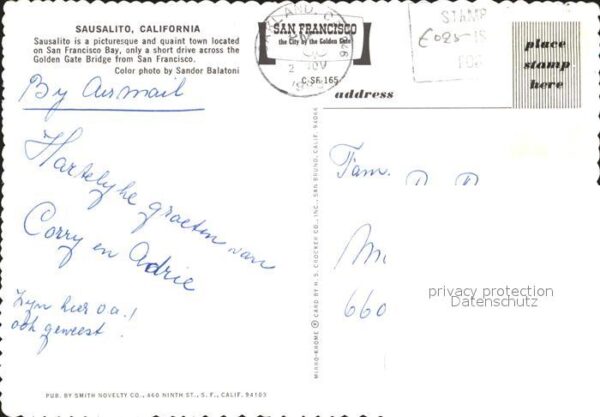 SAUSALITO, CALIFORNIA
Sausalito is a picturesque and quaint town located
on San Francisco Bay, only a short drive across the
Golden Gate Bridge from San Francisco.
Color photo by Sandor Balatoni
SAN FRANCISCO
the City by the Golden Gate
C-SF 165
STAMP
place
stamp
here
address
By Airmail
Hartelijke groeten van
Corry en Adrie
Zijn hier o.a.!
ook geweest.
Fam.
660
privacy protection
Datenschutz
MIRRO-KROME ® CARD BY H. S. CROCKER CO., INC., SAN BRUNO, CALIF. 94066
PUB. BY SMITH NOVELTY CO., 460 NINTH ST., S. F., CALIF. 94103